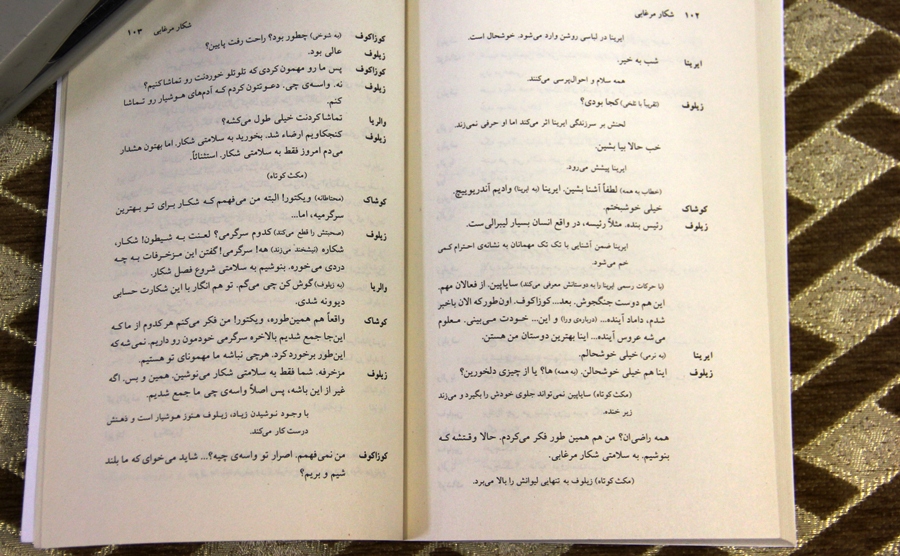 ۱۰۲ شکار مرغابی
ایرینا در لباسی روشن وارد می‌شود. خوشحال است.
ایرینا شب به خیر.
همه سلام و احوال‌پرسی می‌کنند.
زیلوف (تقریباً با تلخی) کجا بودی؟
لحنش بر سرزندگی ایرینا اثر می‌کند اما او حرفی نمی‌زند.
خب حالا بیا بشین.
ایرینا پیشش می‌رود.
(خطاب به همه) لطفاً آشنا بشین. ایرینا (به ایرینا) وادیم آندریوییچ.
کوشاک خیلی خوشبختم.
زیلوف رئیس بنده. مثلاً رئیسه، در واقع انسان بسیار لیبرالی‌ست.
ایرینا ضمن آشنایی با تک تک مهمانان به نشانه‌ی احترام کمی
خم می‌شود.
(با حرکات رسمی ایرینا را به دوستانش معرفی می‌کند) سایاپین. از فعالان مهم.
این هم دوست جنگجوش. بعد... کوزاکوف. اون‌طورکه الان باخبر
شدم، داماد آینده... (درباره‌ی ورا) و این... خودت می‌بینی. معلوم
می‌شه عروس آینده... اینا بهترین دوستان من هستن.
ایرینا (به نرمی) خیلی خوشحالم.
زیلوف اینا هم خیلی خوشحالن. (به همه) ها؟ یا از چیزی دلخورین؟
(مکث کوتاه) سایاپین نمی‌تواند جلوی خودش را بگیرد و می‌زند
زیر خنده.
همه راضی‌ان؟ من هم همین طور فکر می‌کردم. حالا وقتشه که
بنوشیم. به سلامتی شکار مرغابی.
(مکث کوتاه) زیلوف به تنهایی لیوانش را بالا می‌برد.
شکار مرغابی ۱۰۳
کوزاکوف (به شوخی) چطور بود؟ راحت رفت پایین؟
زیلوف عالی بود.
کوزاکوف پس ما رو مهمون کردی که تلوتلو خوردنت رو تماشا کنیم؟
زیلوف نه. واسه‌ی چی. دعوتتون کردم کـه آدم‌های هـوشیار رو تـماشا
کنم.
والریا تماشا کردنت خیلی طول می‌کشه؟
زیلوف کنجکاویم ارضاء شد. بخورید به سلامتی شکار. اما بهتون هشدار
می‌دم امروز فقط به سلامتی شکار. استثنائاً.
(مکث کوتاه)
کوشاک (محتاطانه) ویکتور! البته من می‌فهمم کـه شکـار بـرای تـو بـهترین
سرگرمیه، اما...
زیلوف (صحبتش را قطع می‌کند) کدوم سرگرمی؟ لعنت بـه شیطون! شکـار،
شکاره (نیشخند می‌زند) هه! سرگرمی! گفتن این مـزخرفات بـه چـه
دردی می‌خوره. بنوشیم به سلامتی شروع فصل شکار.
والریا (به زیلوف) گوش کن چی می‌گم. تو هم انگار با این شکارت حسابی
دیوونه شدی.
کوشاک واقعاً هم همین‌طوره، ویکتور! من فکر می‌کنم هر کدوم از ما کـه
این‌جا جمع شدیم بالاخره سرگرمی خودمون رو داریم. نمی‌شه که
این‌طور برخورد کرد. هرچی نباشه ما مهمونای تو هستیم.
زیلوف مزخرفه. شما فقط به سلامتی شکار می‌نوشین. همین و بس. اگه
غیر از این باشه، پس اصلاً واسه‌ی چی ما جمع شدیم.
با وجود نوشیدن زیـاد، زیـلوف هـنوز هـوشیار است و ذهـنش
درست کار می‌کند.
کوزاکوف من نمی‌فهمم. اصرار تو واسه‌ی چیه؟... شاید می‌خوای که ما بلند
شیم و بریم؟